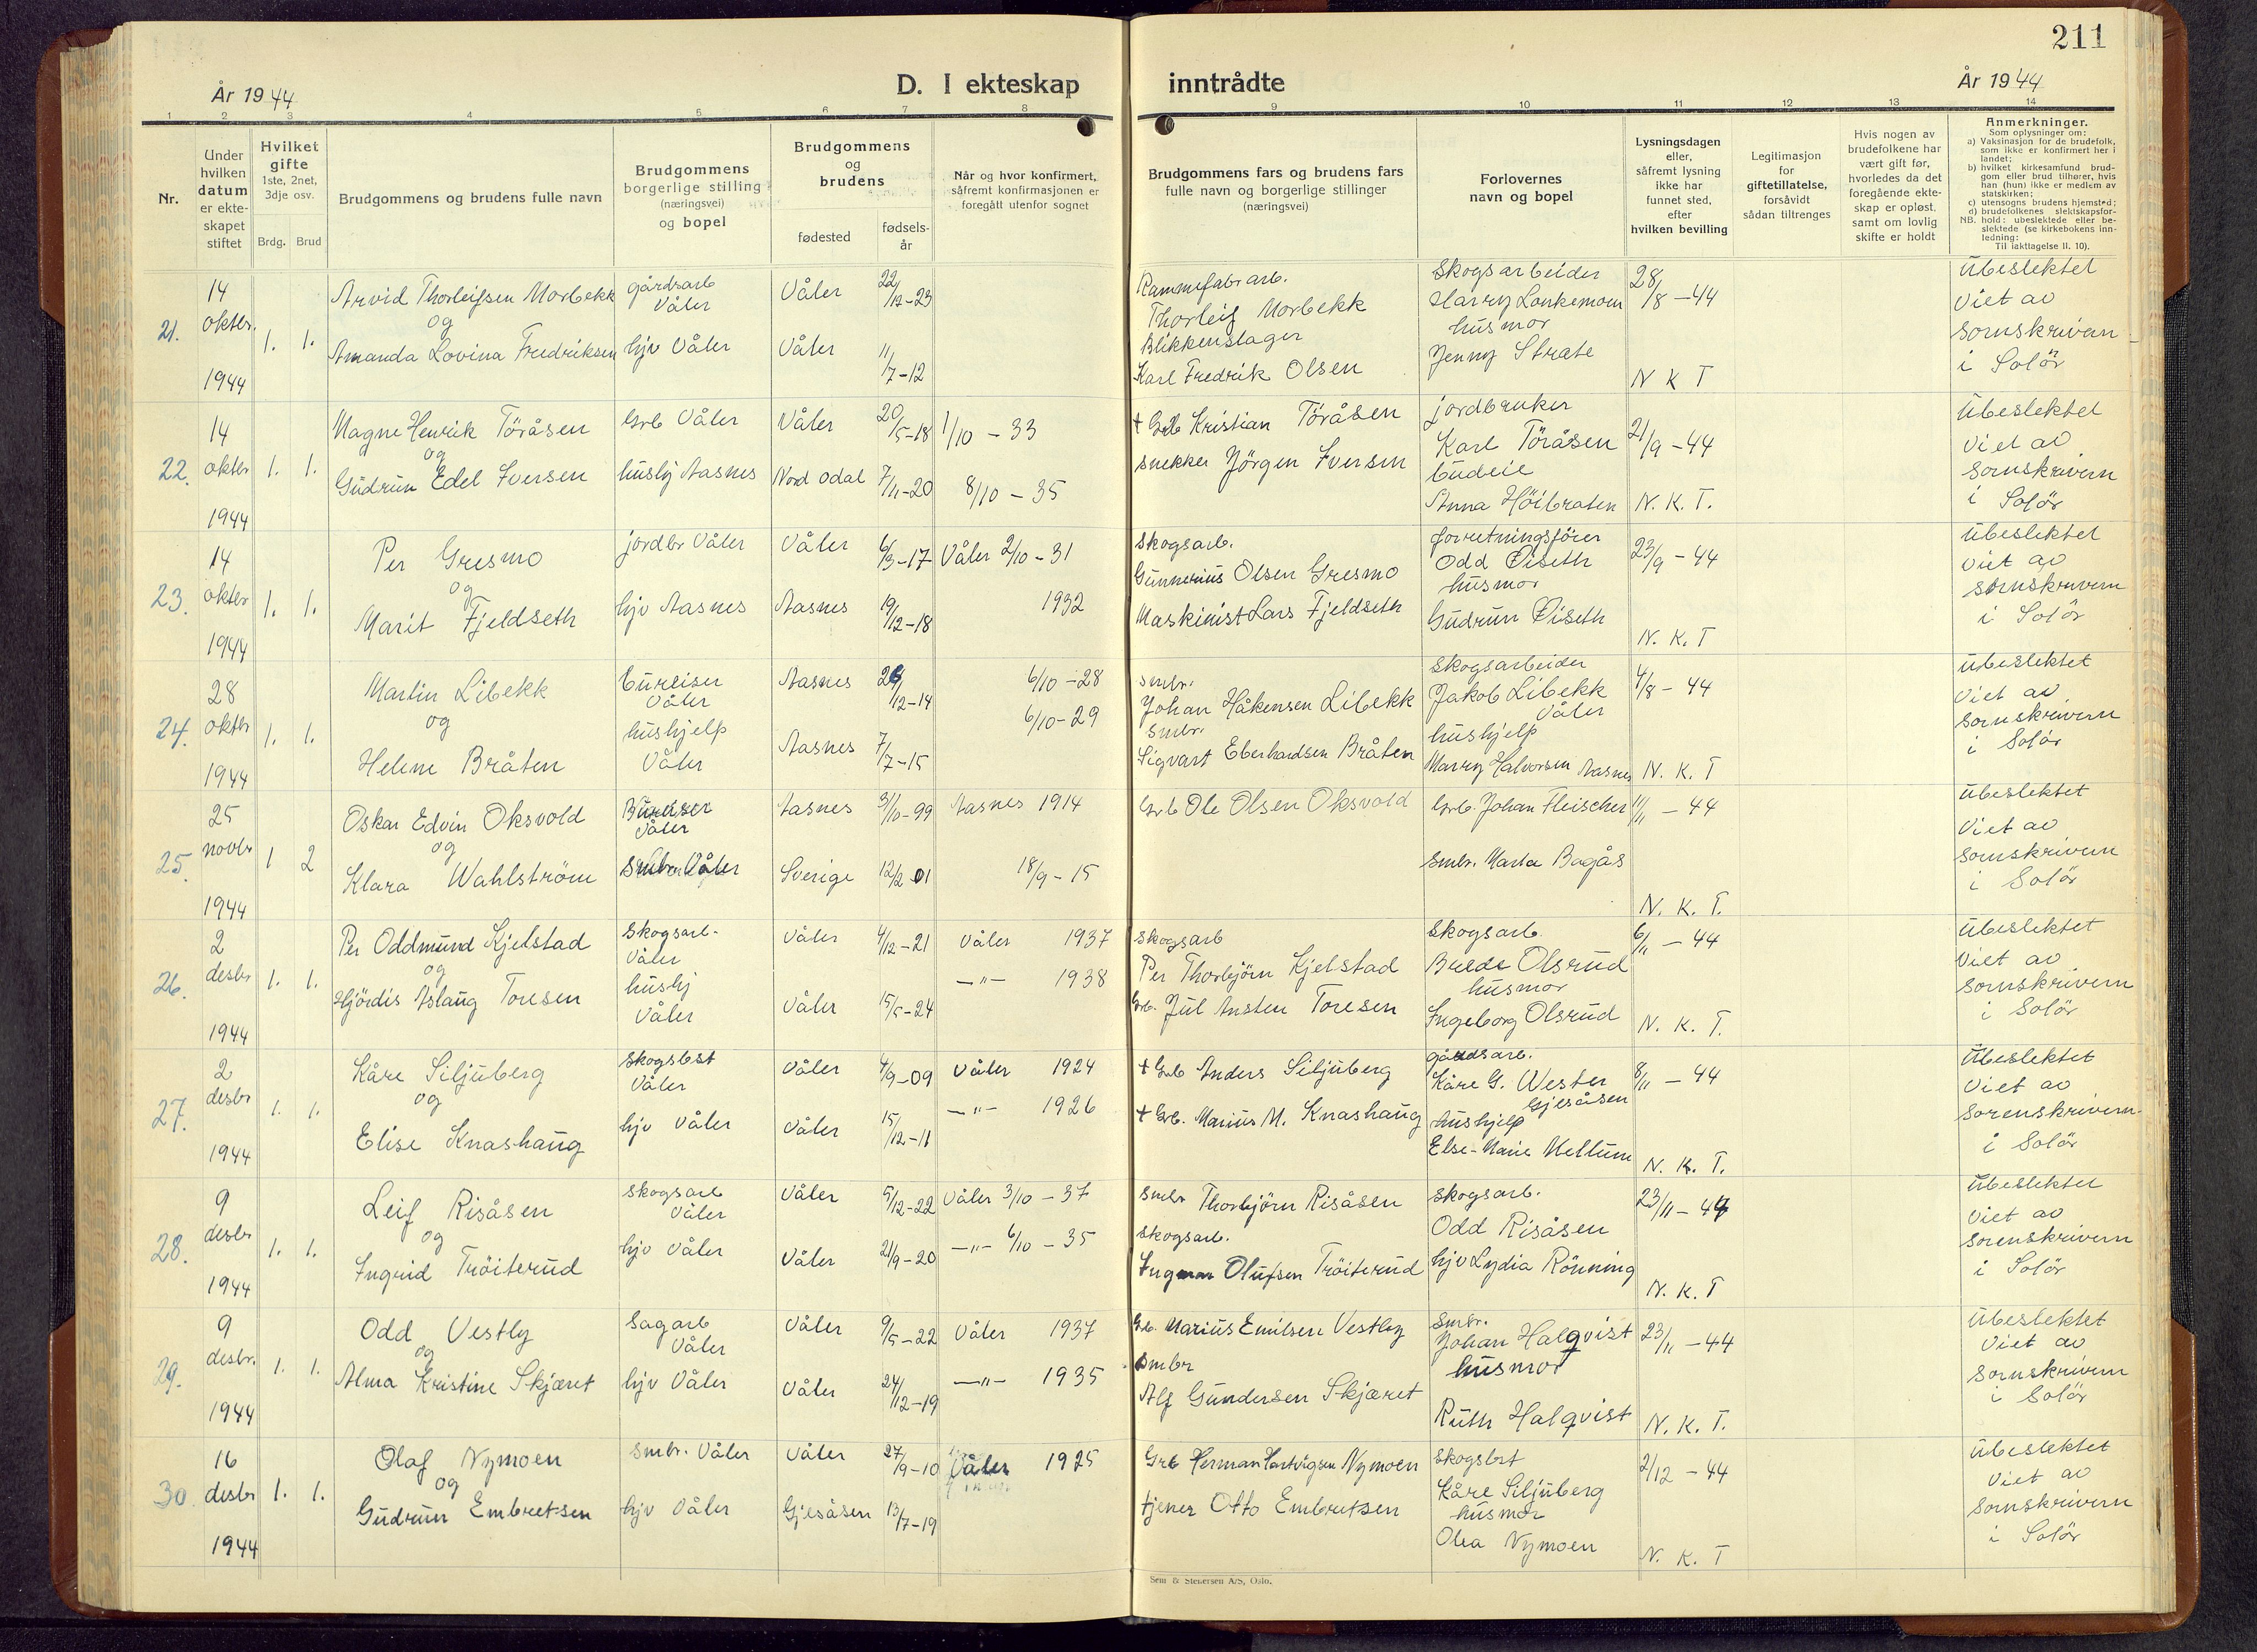 211
År 1944
D. I ekteskap inntrådte
År 1944
1 2 3 4 5 6 7 8 9 10 11 12 13 14
Nr.
Under
hvilken
datum
er ekte-
skapet
stiftet
Hvilket
gifte
1ste, 2net,
3dje osv.
Brdg. Brud
Brudgommens og brudens fulle navn
Brudgommens
borgerlige stilling
(næringsvei)
og bopel
Brudgommens
og
brudens
fødested
fødsels-
år
Når og hvor konfirmert,
såfremt konfirmasjonen er
foregått utenfor sognet
Brudgommens fars og brudens fars
fulle navn og borgerlige stillinger
(næringsvei)
Forlovernes
navn og bopel
Lysningsdagen
eller,
såfremt lysning
ikke har
funnet sted,
efter
hvilken bevilling
Legitimasjon
for
giftetillatelse,
forsåvidt
sådan tiltrenges
Hvis nogen av
brudefolkene har
vært gift før,
hvorledes da det
foregående ekte-
skap er opløst,
samt om lovlig
skifte er holdt
Anmerkninger.
Som oplysninger om:
a) Vaksinasjon for de brudefolk,
som ikke er konfirmert her i
landet;
b) hvilket kirkesamfund brud-
gom eller brud tilhører, hvis
han (hun) ikke er medlem av
statskirken;
c) utensogns brudens hjemsted;
d) brudefolkenes slektskapsfor-
NB. hold: ubeslektede eller be-
slektede (se kirkebokens inn-
ledning:
Til iakttagelse II. 10).
21.
14
oktbr.
1944
1. 1.
Arvid Thorleifsen Morbekk
og
Amanda Lovina Fredriksen
gårdsarb
Våler
hjv Våler
Våler 22/12-23
Våler 11/7-12
Rammefabr arb.
Thorleif Morbekk
Blikkenslager
Karl Fredrik Olsen
Skogsarbeider
Harry Lonkemoen
husmor
Jenny Strate
28/8-44
N K T
Ubeslektet
Viet av
Sornskrivern
i Solör
22.
14
oktbr
1944
1. 1.
Magne Henrik Töråsen
og
Gudrun Edel Iversen
Grb Våler
hushj Aasnes
Våler 20/5-18
Nord Odal 7/11-20
1/10 - 33
8/10 - 35
† Grb Kristian Töråsen
snekker Jörgen Iversen
jordbruker
Karl Töråsen
budeie
Anna Höibraten
21/9-44
N. K. T.
Ubeslektet
Viet av
Sornskrivern
i Solör
23.
14
oktbr
1944
1. 1.
Per Gresmo
og
Marit Fjeldseth
jordbr Våler
hjv Aasnes
Våler 6/3-17
Aasnes 19/12-18
Våler 2/10-31
1932
Skogsarb.
Gunnerius Olsen Gresmo
Maskinist Lars Fjeldseth
forretningsförer
Odd Öiseth
husmor
Gudrun Öiseth
23/9-44
N. K. T
Ubeslektet
viet av
sornskrivern
i Solör
24.
28
oktbr
1944
1. 1.
Martin Libekk
og
Helene Bråten
Bureiser
Våler
hushjelp
Våler
Aasnes 26/12-14
Aasnes 7/7-15
6/10-28
6/10-29
smbr.
Johan Håkensen Libekk
Smbr.
Sigvart Eberhardsen Bråten
Skogsarbeider
Jakob Libekk
Våler
hushjelp
Marry Halvorsen Aasnes
4/8-44
N. K. T
Ubeslektet
viet av
Sornskrivern
i Solör
25.
25
novbr
1944
1 2
Oskar Edvin Oksvold
og
Klara Wahlström
Bureiser
Våler
Smbr Våler
Aasnes 3/10-99
Sverige 12/2-01
Aasnes 1914
18/9-15
Grb Ole Olsen Oksvold
Grb. Johan Fleischer
Smbr. Marta Bagås
11/11-44
N. K. T.
Ubeslektet
Viet av
Sornskrivern
i Solör
26.
2
desbr
1944
1. 1.
Per Oddmund Kjelstad
og
Hjördis Aslaug Toresen
Skogsarb.
Våler
hushj
Våler
Våler 4/12-21
Våler 15/5-24
Våler 1937
—"— 1938
Skogsarb
Per Thorbjörn Kjelstad
Grb. Jul Ansten Toresen
Skogsarb.
Brede Olsrud
husmor
Ingeborg Olsrud
6/11-44
N. K. T.
Ubeslektet
Viet av
Sornskrivern
i Solör
27.
2
desbr
1944
1. 1.
Kåre Siljuberg
og
Elise Knashaug
Skogsbst
Våler
hjv Våler
Våler 4/9-09
Våler 15/12-11
Våler 1924
—"— 1926
† Grb Anders Siljuberg
† Grb. Marius M. Knashaug
gårdsarb.
Kåre G. Wester
Gjesåsen
hushjelp
Else-Marie Mellum
8/11-44
N. K. T.
Ubeslektet
Viet av
Sorenskrivern
i Solör
28.
9
desbr
1944
1. 1.
Leif Risåsen
og
Ingrid Tröiterud
Skogsarb
Våler
hjv Våler
Våler 5/12-22
Våler 21/9-20
Våler 3/10-37
—"— 6/10-35
Smbr Thorbjörn Risåsen
Skogsarb.
Ingmar Olufsen Tröiterud
Skogsarb.
Odd Risåsen
hjv Lydia Rönning
23/11-44
N. K. T
Ubeslektet
Viet av
Sorenskrivern
i Solör
29.
9
desbr.
1944
1. 1.
Odd Vestby
og
Alma Kristine Skjæret
Sagarb
Våler
hjv Våler
Våler 9/5-22
Våler 24/12-19
Våler 1937
—"— 1935
Grb. Marius Emilsen Vestby
Smbr
Alf Gundersen Skjæret
Smbr.
Johan Halqvist
husmor
Ruth Halqvist
23/11-44
N. K. T.
Ubeslektet
Viet av
Sornskrivern
i Solör
30.
16
desbr
1944
1. 1.
Olaf Nymoen
og
Gudrun Embretsen
Smbr. Våler
hjv Våler
Våler 27/9-10
Gjesåsen 13/7-19
Våler 1925
Grb Herman Hartvigsen Nymoen
tjener Otto Embretsen
Skogsbst
Kåre Siljuberg
husmor
Olea Nymoen
2/12-44
N. K. T
Ubeslektet
Viet av
Sornskrivern
i Solör
Sem & Stenersen A/S, Oslo.